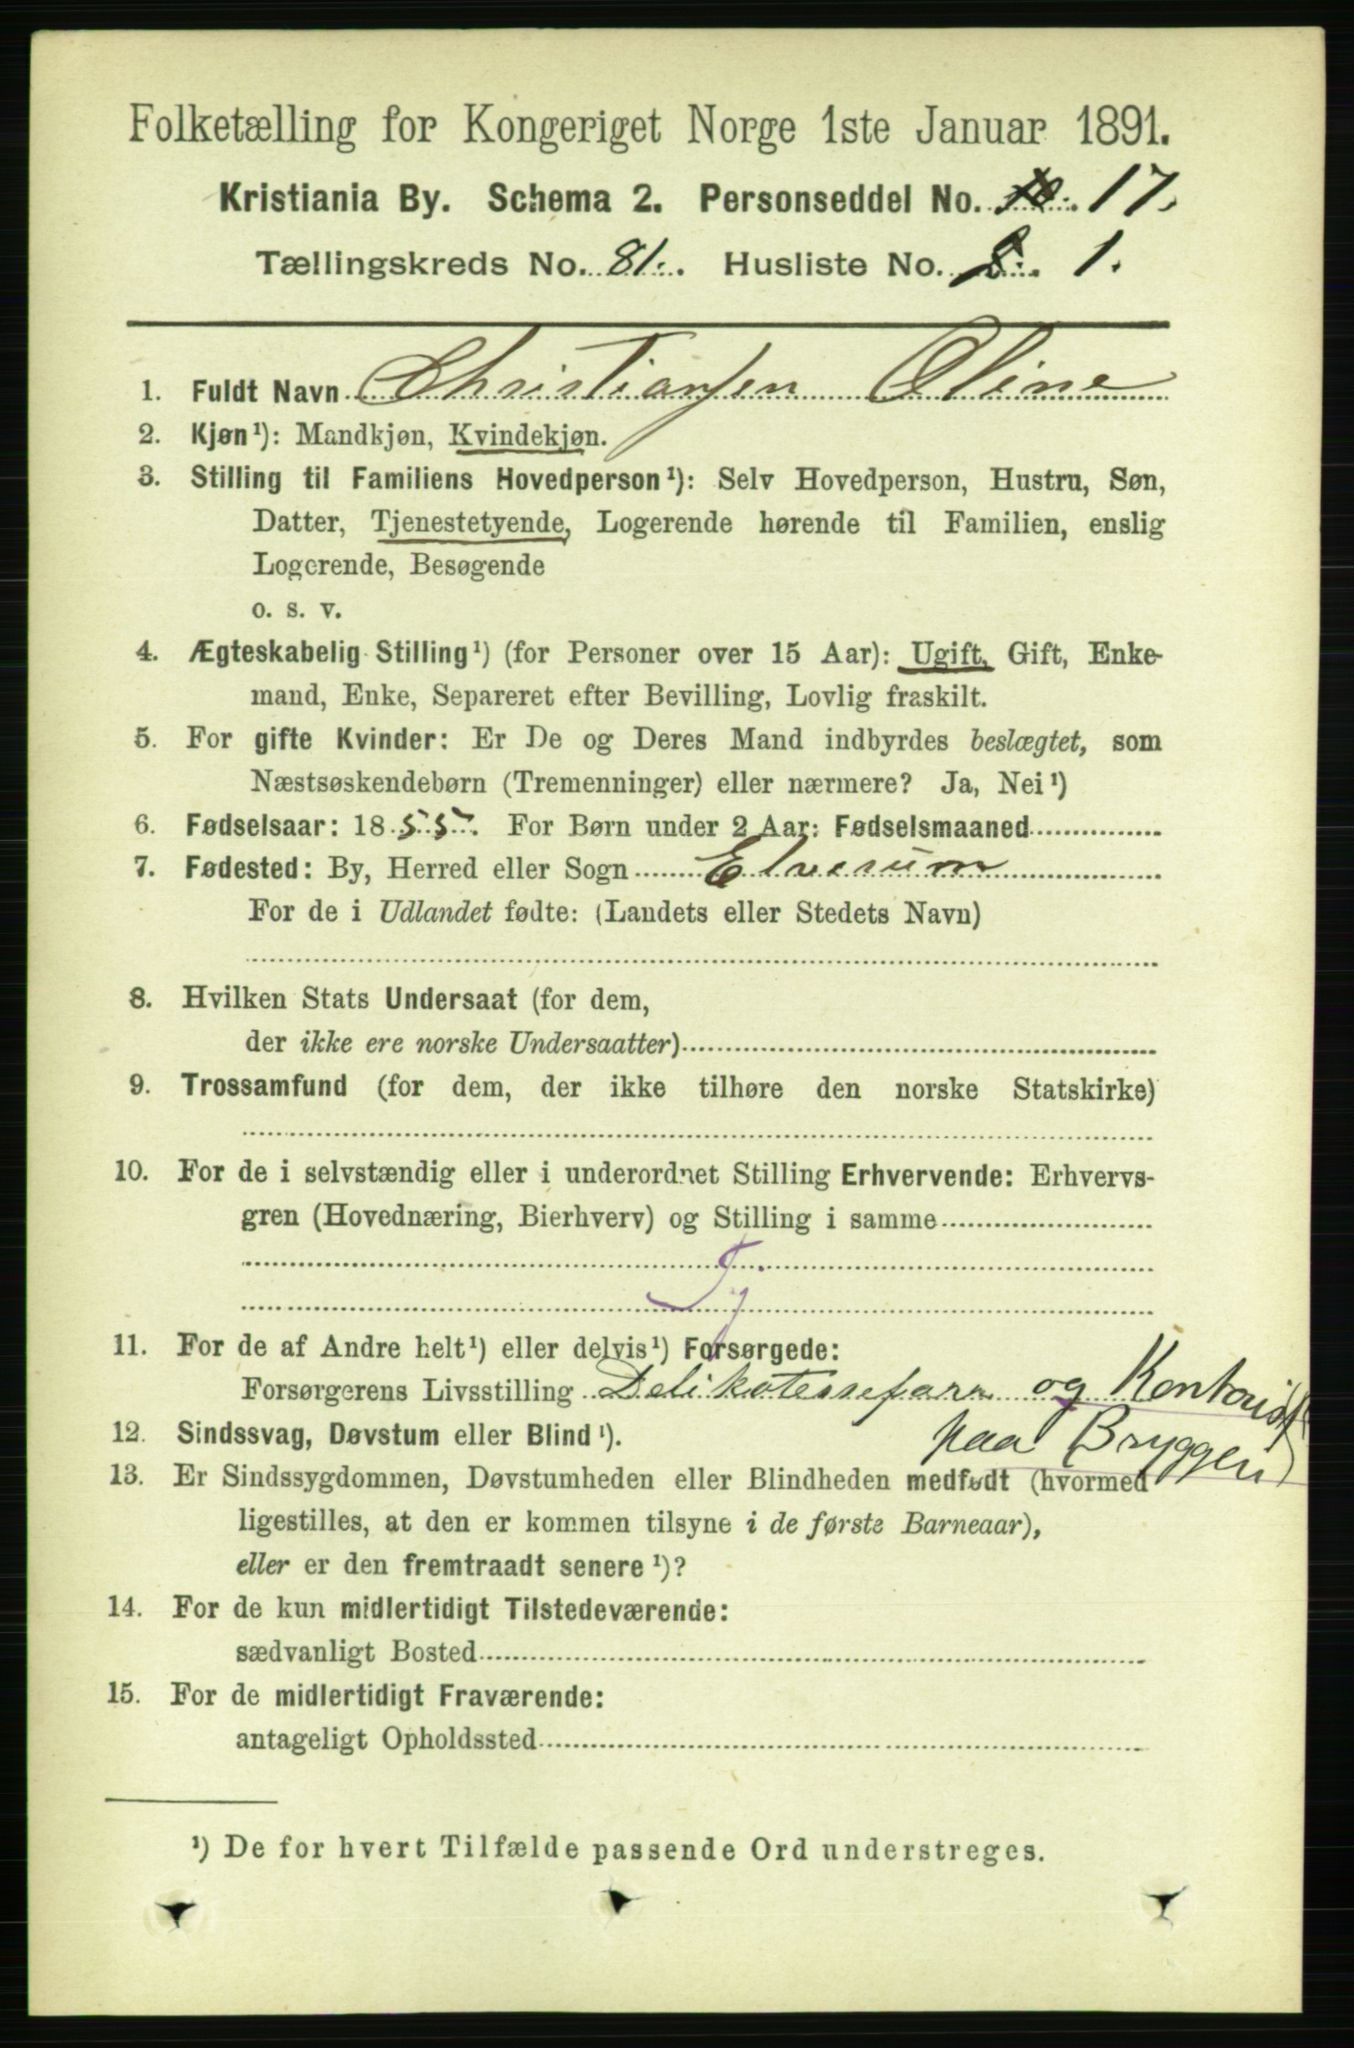 Folketælling for Kongeriget Norge 1ste Januar 1891.
Kristiania By. Schema 2. Personseddel No. 10. 17.
Tællingskreds No. 81. Husliste No. 8. 1.
1. Fuldt Navn Christiansen Oline
2. Kjøn¹): Mandkjøn, Kvindekjøn.
3. Stilling til Familiens Hovedperson¹): Selv Hovedperson, Hustru, Søn,
Datter, Tjenestetyende, Logerende hørende til Familien, enslig
Logerende, Besøgende
o. s. v.
4. Ægteskabelig Stilling¹) (for Personer over 15 Aar): Ugift, Gift, Enke-
mand, Enke, Separeret efter Bevilling, Lovlig fraskilt.
5. For gifte Kvinder: Er De og Deres Mand indbyrdes beslægtet, som
Næstsøskendebørn (Tremenninger) eller nærmere? Ja, Nei¹)
6. Fødselsaar: 1855. For Børn under 2 Aar: Fødselsmaaned
7. Fødested: By, Herred eller Sogn Elverum
For de i Udlandet fødte: (Landets eller Stedets Navn)
8. Hvilken Stats Undersaat (for dem,
der ikke ere norske Undersaatter)
9. Trossamfund (for dem, der ikke tilhøre den norske Statskirke)
10. For de i selvstændig eller i underordnet Stilling Erhvervende: Erhvervs-
gren (Hovednæring, Bierhverv) og Stilling i samme
Tj
11. For de af Andre helt¹) eller delvis¹) Forsørgede:
Forsørgerens Livsstilling Delikatesseforr og Kontorist
paa Bryggeri
12. Sindssvag, Døvstum eller Blind¹).
13. Er Sindssygdommen, Døvstumheden eller Blindheden medfødt (hvormed
ligestilles, at den er kommen tilsyne i de første Barneaar),
eller er den fremtraadt senere¹)?
14. For de kun midlertidigt Tilstedeværende:
sædvanligt Bosted
15. For de midlertidigt Fraværende:
antageligt Opholdssted
¹) De for hvert Tilfælde passende Ord understreges.